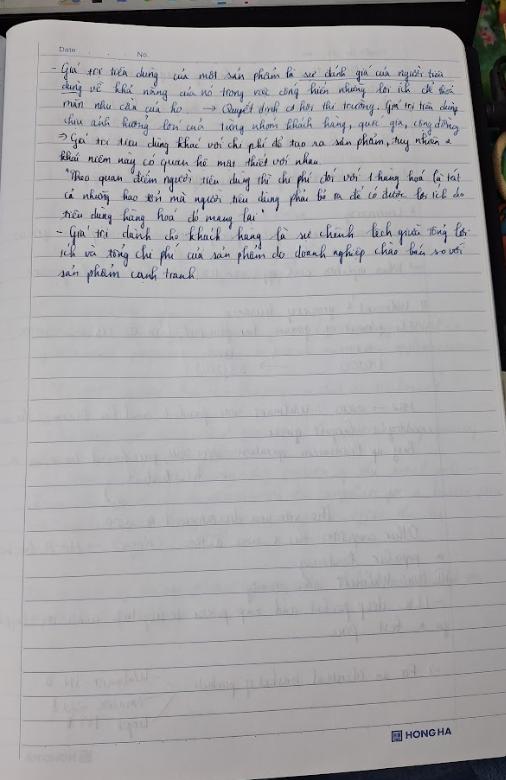 Date . . No.
- Giá trị tiêu dùng của một sản phẩm là sự đánh giá của người tiêu
dùng về khả năng của nó trong việc cống hiến những lợi ích để thỏa
mãn nhu cầu của họ → Quyết định cơ hội thị trường. Giá trị tiêu dùng
chịu ảnh hưởng lớn của từng nhóm khách hàng, quốc gia, cộng đồng
⇒ Giá trị tiêu dùng khác với chi phí để tạo ra sản phẩm, tuy nhiên 2
khái niệm này có quan hệ mật thiết với nhau.
"Theo quan điểm người tiêu dùng thì chi phí đối với 1 hàng hoá là tất
cả những hao tổn mà người tiêu dùng phải bỏ ra để có được lợi ích do
tiêu dùng hàng hoá đó mang lại"
- Giá trị dành cho khách hàng là sự chênh lệch giữa tổng lợi
ích và tổng chi phí của sản phẩm do doanh nghiệp chào bán so với
sản phẩm cạnh tranh.
HONG HA